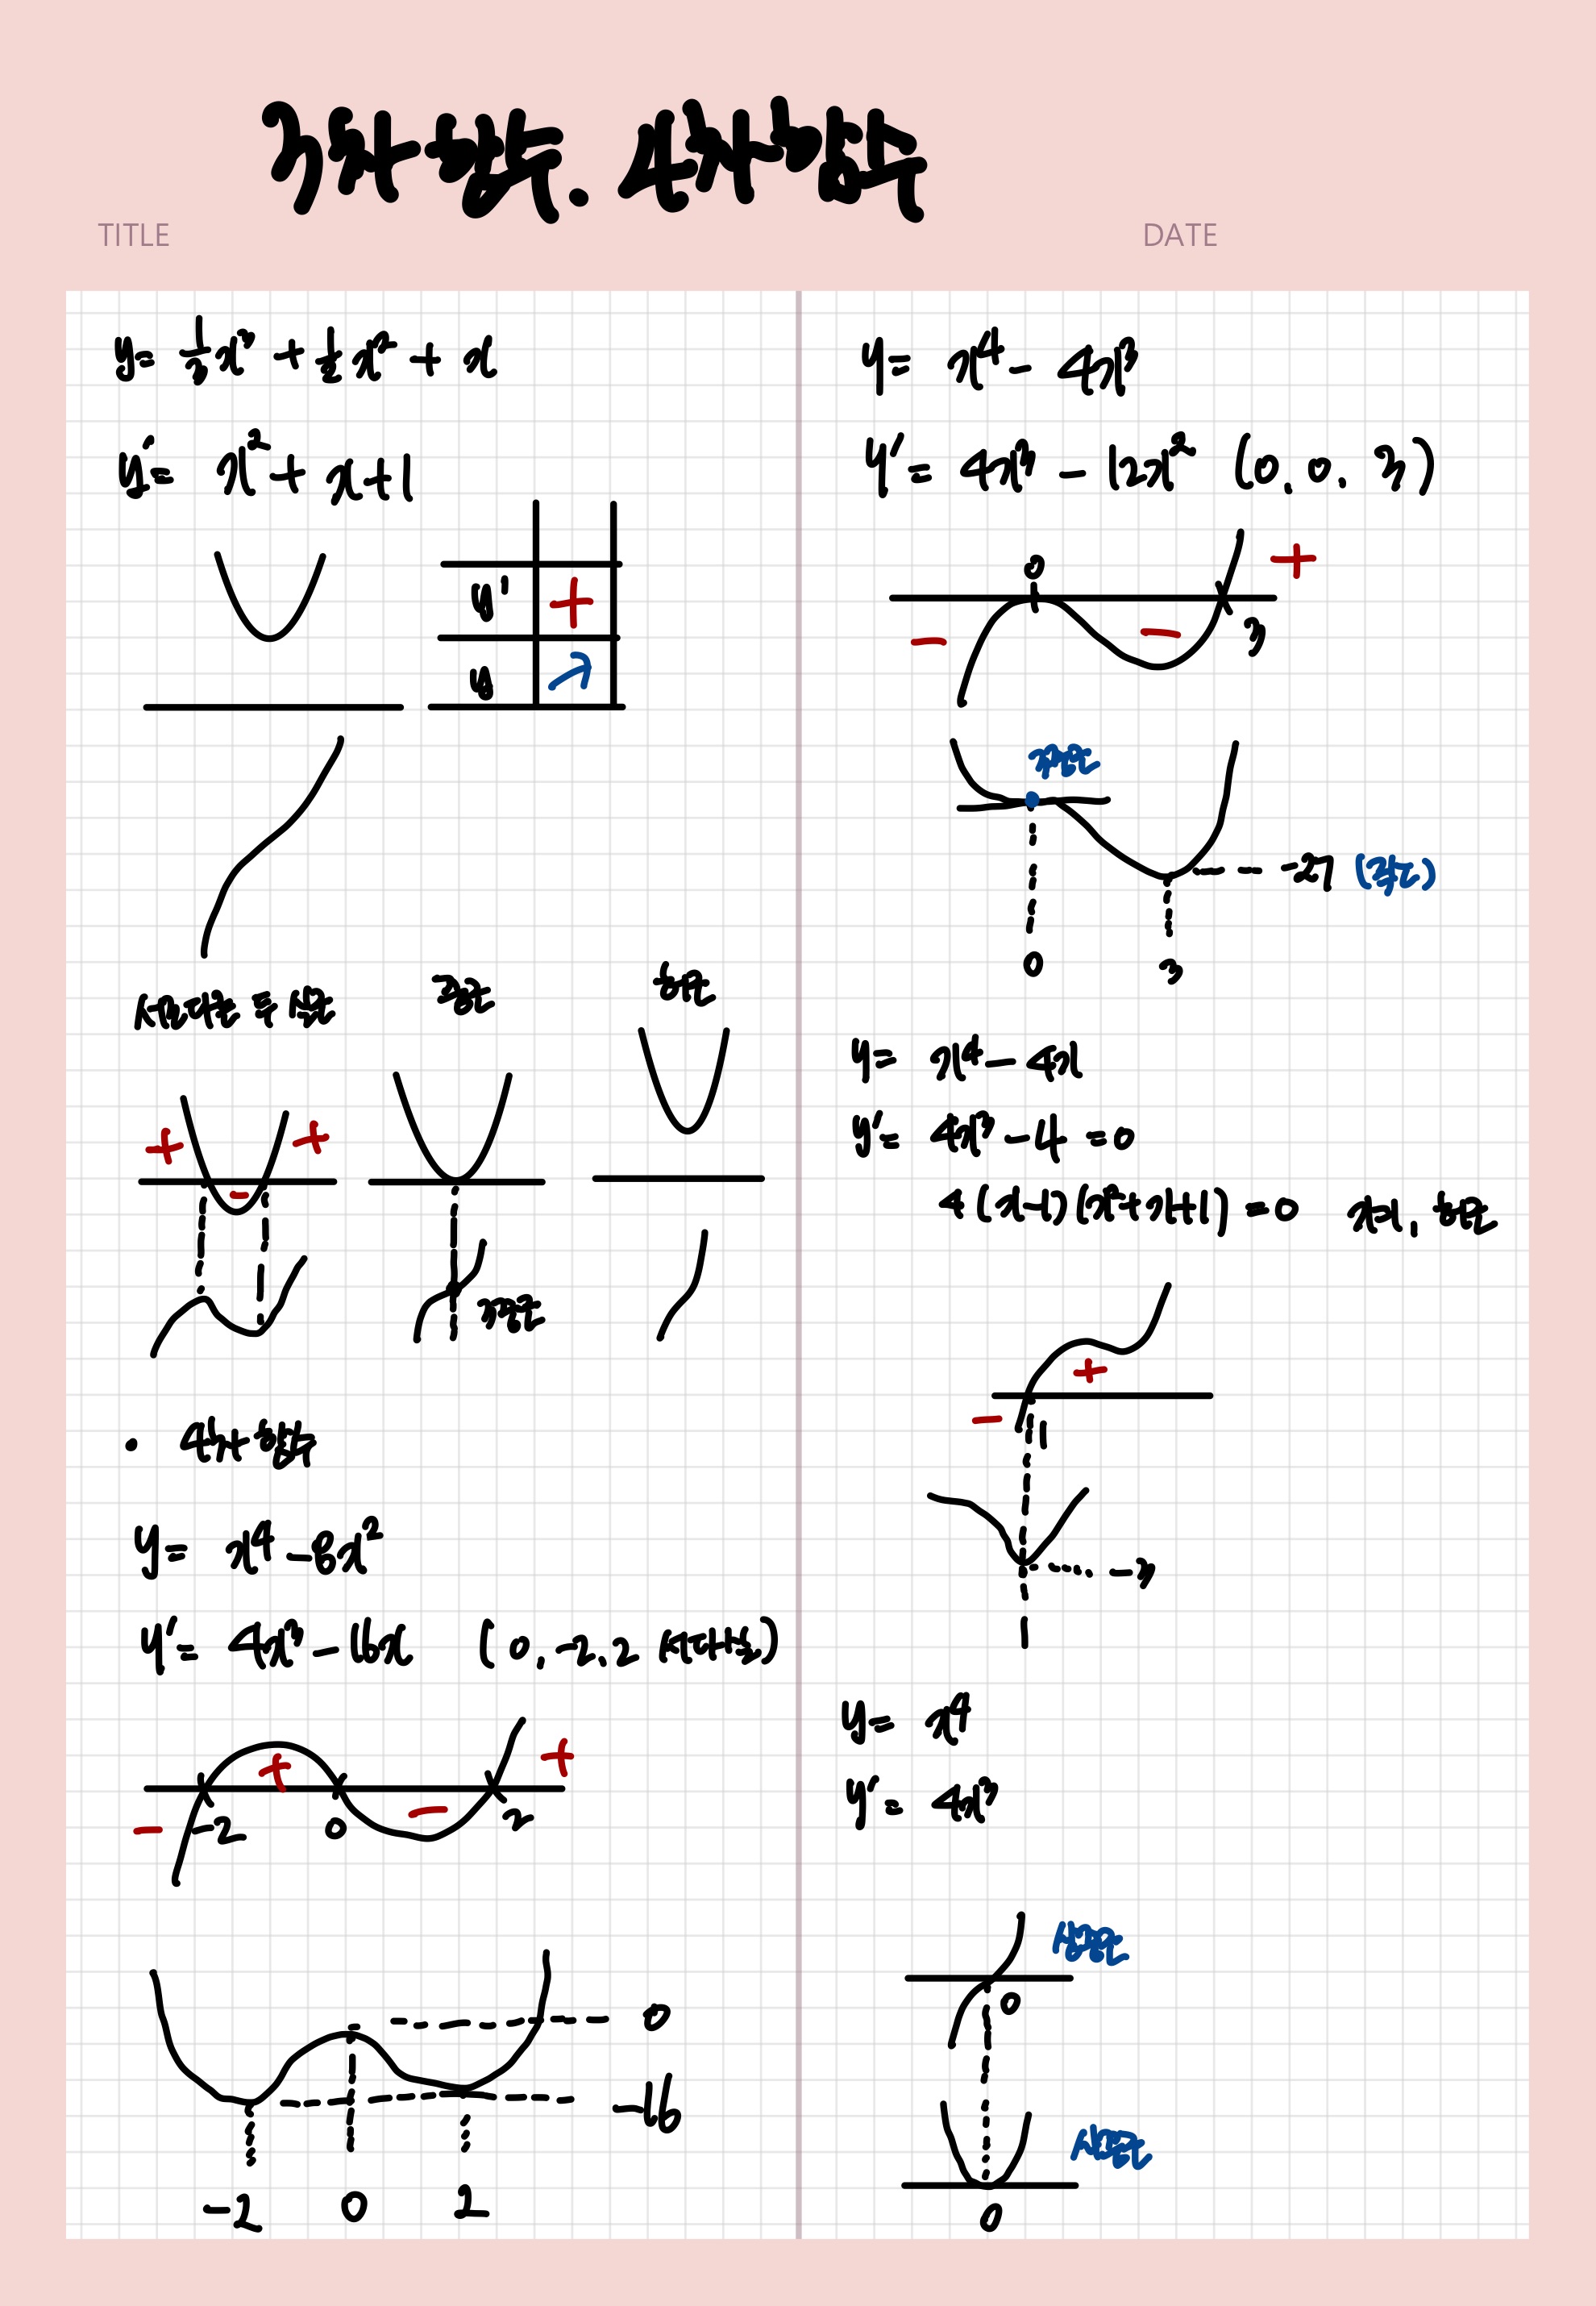 3차함수. 4차함수
TITLE
DATE
y= 1/3x³ + 1/2x² + x
y'= x² + x+1
y' +
y ↗
서로다른 두 실근
중근
허근
+ - +
삼중근
• 4차함수
y= x⁴ -8x²
y'= 4x³ -16x (0, -2, 2
- + - +
-2 0 2
0
-16
-2 0 2
y= x⁴ - 4x³
y'= 4x³ - 12x² (0, 0, 3)
0
+
- -
3
-27
0 3
y= x⁴ - 4x
y'= 4x³ - 4 =0
4(x-1)(x²+x+1) =0 x=1, 허근
+
-
1
-3
1
y= x⁴
y'= 4x³
삼중근
0
사중근
0